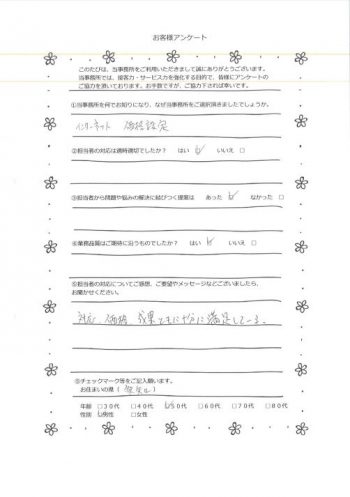 お客様アンケート
このたびは、当事務所をご利用いただきまして誠にありがとうございます。
当事務所では、接客力・サービス力を強化する目的で、皆様にアンケートの
ご協力を頂いております。お手数ですが、ご協力下されば幸いです。
①当事務所を何でお知りになり、なぜ当事務所をご選択頂きましたでしょうか。
インターネット 価格設定
②担当者の対応は適時適切でしたか？ はい ☑ いいえ □
③担当者から問題や悩みの解決に結びつく提案は あった ☑ なかった □
④業務品質はご期待に沿うものでしたか？ はい ☑ いいえ □
⑤担当者の対応についてご感想、ご要望やメッセージなどございましたら、
お聞かせください。
対応、価格、成果ともに十分に満足している。
⑥チェックマーク等をご記入願います。
お住まいの県（ ）
年齢 □３０代 □４０代 ☑５０代 □６０代 □７０代 □８０代
性別 ☑男性 □女性